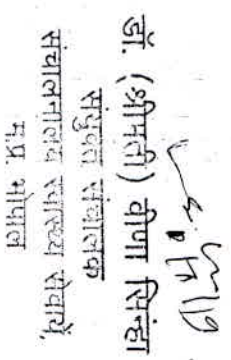 डॉ. (श्रीमती) वीणा सिन्हा
संयुक्त संचालक
संचालनालय स्वास्थ्य सेवायें,
म.प्र. भोपाल